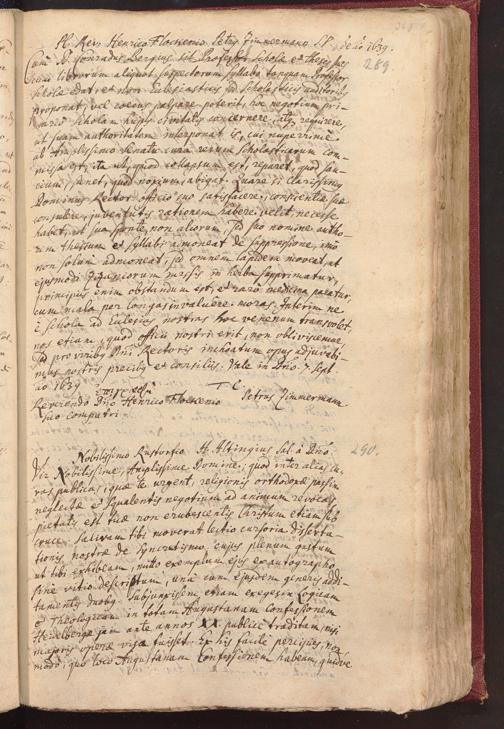 H. Rev. Henrico Flockenio Petrus Zimmermann 1639.
289.
Cum D. Conradus Bergius tot Professor Schola et Theses
librorum aliquot suspectorum syllabo tanquam Professor
schola edat, et non Ecclesiasticis sed scholasticis auditoribus
proponat, vel coecus palpare poterit, hoc negotium
scholam hujus civitatis concernere, requirere,
ut suam authoritatem interponat is, cui nuperrime
ab Amplissimo Senatu cura rerum scholasticarum com
missa est, ita ut, quod collapsum est, reparet, quod sau
cium, sanet, quod noxium, abigat. Quare si Clarissimus
Dominus Rector officio suo satisfacere, conscientiae suae
consulere, juventutis rationem habere velit, necesse
habet, ut sua sponte, non aliorum, sed suo nomine autho-
rem thesium et syllabi admoneat de suppressione, imo
non solum admoneat, sed omnem lapidem moveat, ut
ejusmodi Zizaniorum messis in herba supprimatur,
principiis enim obstandum est, et sero medicina paratur,
cum mala per longas invaluere moras. Interim ne
e schola ad Ecclesias nostras hoc venenum transvolet,
nos etiam, quod officii nostri erit, non obliviscemur,
sed pro viribus Dni Rectoris inchoatum opus adjuvabi-
mus nostris precibus et consiliis. Vale in Dno. 7. Sept.
ao 1639
T. E.
Reverendo Dno Henrico Flockenio Petrus Zimmermann
suo compatri.
290.
Nobilissimo Rusdorfio H. Altingius Sal. a Dno.
Vir Nobilissime, Amplissime Domine, quod inter alias cu-
ras publicas, quae te urgent, religionis orthodoxae passim
neglectae et squalentis negotium ad animum revocas,
pietatis est tuae non erubescentis Christum etiam sub
cruce. Salivam tibi moverat lectio cursoria disserta-
tionis nostrae de Syncretismo, cujus plenum gustum
ut tibi exhibeam, mitto exemplum ejus ex autographo
sine vitio descriptum, una cum ejusdem generis addi-
tamentis duobus. Subjunxissem etiam exegesin Logicam
et Theologicam in totam Augustanam Confessionem
Heidelbergae jam ante annos XX. publice traditam, nisi
majoris operae visa fuisset. Ex his facile percipies, non
modo, quo loco Augustanam Confessionem habeam,